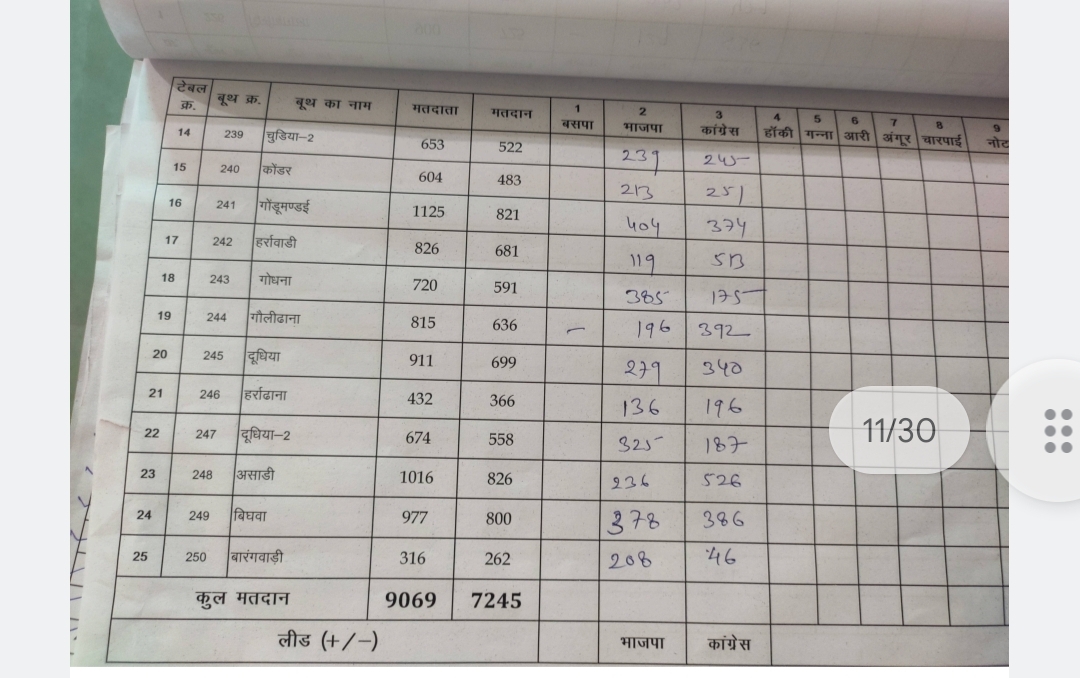 टेबल क्र. बूथ क्र. बूथ का नाम मतदाता मतदान 1 बसपा 2 भाजपा 3 कांग्रेस 4 हॉकी 5 गन्ना 6 आरी 7 अंगूर 8 चारपाई 9 नोट
14 239 चुडिया–2 653 522 239 245
15 240 कोंडर 604 483 213 251
16 241 गोंडूमण्डई 1125 821 404 374
17 242 हर्रावाडी 826 681 119 513
18 243 गोधना 720 591 385 175
19 244 गौलीढाना 815 636 – 196 392
20 245 दूधिया 911 699 279 340
21 246 हर्राढाना 432 366 136 196
22 247 दूधिया–2 674 558 325 187
23 248 असाडी 1016 826 236 526
24 249 बिघवा 977 800 378 386
25 250 बारंगवाड़ी 316 262 208 46
कुल मतदान 9069 7245
लीड (+/–) भाजपा कांग्रेस
11/30